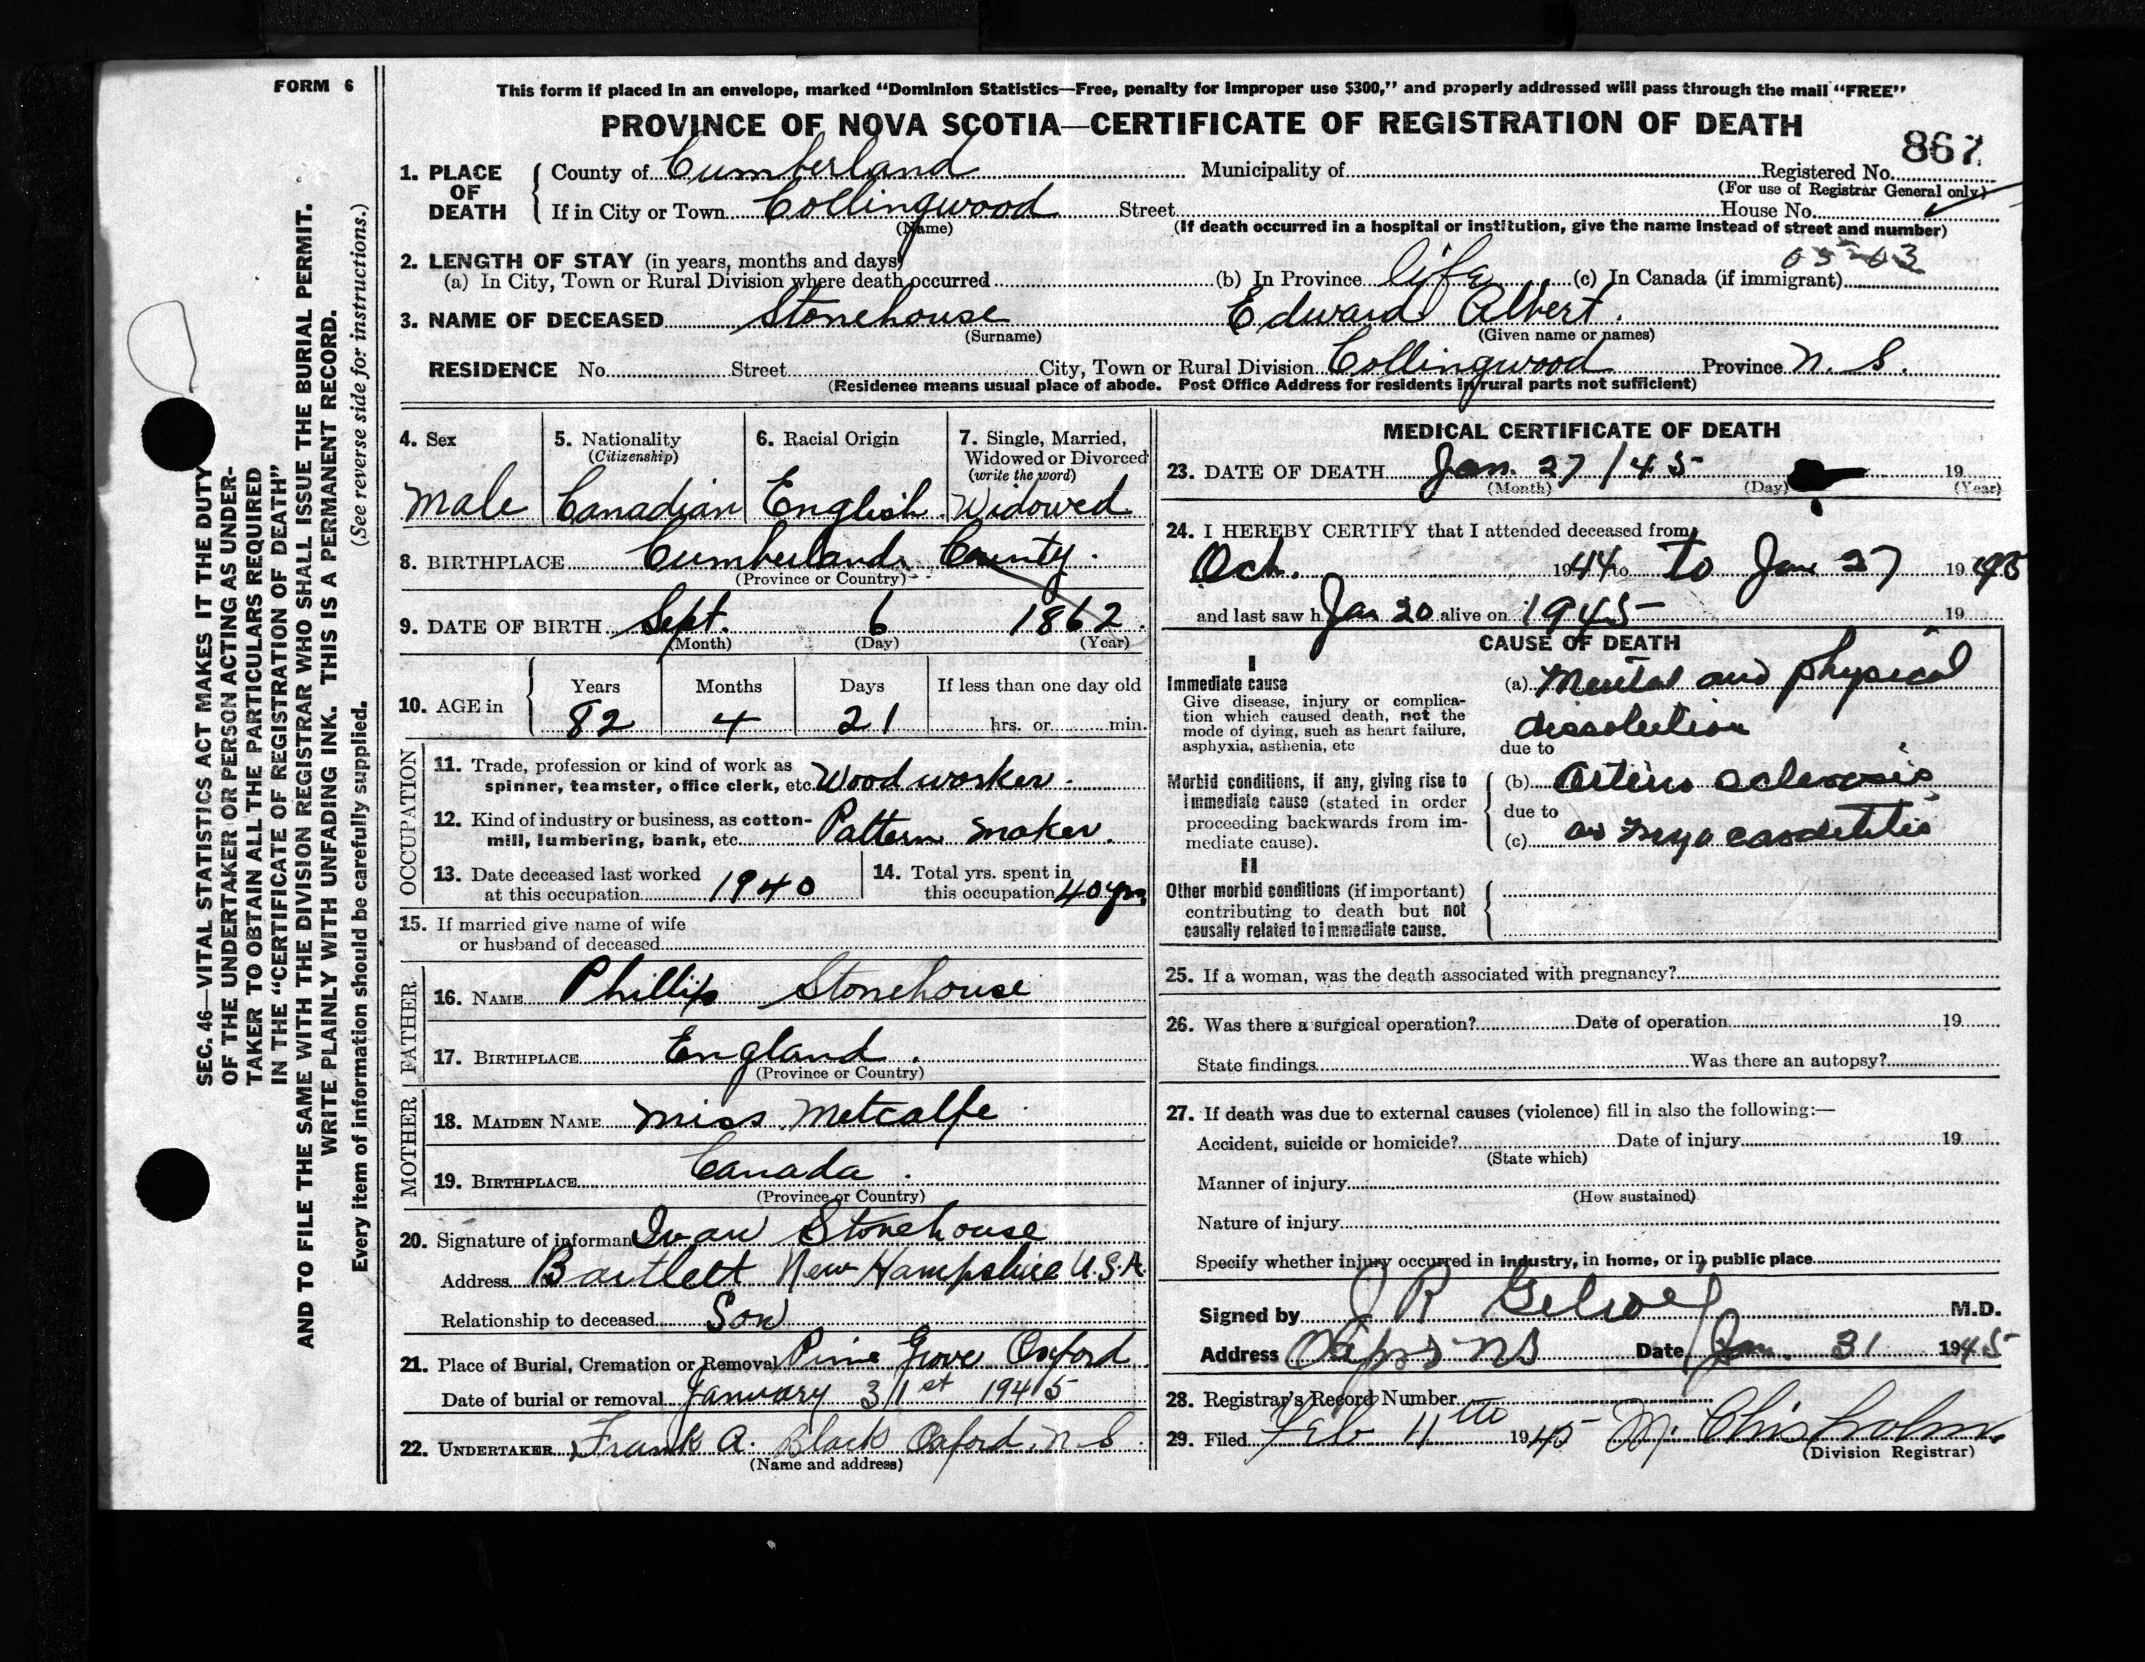 FORM 6
This form if placed in an envelope, marked "Dominion Statistics—Free, penalty for improper use $300," and properly addressed will pass through the mail "FREE"
PROVINCE OF NOVA SCOTIA—CERTIFICATE OF REGISTRATION OF DEATH
867
1. PLACE OF DEATH
County of Cumberland Municipality of Registered No.
(For use of Registrar General only)
If in City or Town Collingwood Street House No.
(Name) (If death occurred in a hospital or institution, give the name instead of street and number)
2. LENGTH OF STAY (in years, months and days)
(a) In City, Town or Rural Division where death occurred (b) In Province life (c) In Canada (if immigrant)
3. NAME OF DECEASED Stonehouse Edward Albert.
(Surname) (Given name or names)
RESIDENCE No. Street City, Town or Rural Division Collingwood Province N. S.
(Residence means usual place of abode. Post Office Address for residents in rural parts not sufficient)
4. Sex
Male
5. Nationality
(Citizenship)
Canadian
6. Racial Origin
English
7. Single, Married,
Widowed or Divorced
(write the word)
Widowed
8. BIRTHPLACE Cumberland County.
(Province or Country)
9. DATE OF BIRTH Sept. 6 1862.
(Month) (Day) (Year)
10. AGE in
Years Months Days If less than one day old
82 4 21 hrs. or min.
OCCUPATION
11. Trade, profession or kind of work as
spinner, teamster, office clerk, etc. Wood worker.
12. Kind of industry or business, as cotton-
mill, lumbering, bank, etc. Pattern maker.
13. Date deceased last worked
at this occupation 1940
14. Total yrs. spent in
this occupation 40 yrs
15. If married give name of wife
or husband of deceased
FATHER
16. NAME Phillip Stonehouse
17. BIRTHPLACE England.
(Province or Country)
MOTHER
18. MAIDEN NAME Miss Metcalfe
19. BIRTHPLACE Canada.
(Province or Country)
20. Signature of informant Ivan Stonehouse
Address Bartlett New Hampshire U.S.A.
Relationship to deceased Son
21. Place of Burial, Cremation or Removal Pine Grove Oxford
Date of burial or removal January 31st 1945
22. UNDERTAKER Frank A. Black Oxford. N S.
(Name and address)
MEDICAL CERTIFICATE OF DEATH
23. DATE OF DEATH Jan. 27 /45 19
(Month) (Day) (Year)
24. I HEREBY CERTIFY that I attended deceased from
Oct. 1944 to to Jan 27 1945
and last saw h Jan 20 alive on 1945 19
CAUSE OF DEATH
I
Immediate cause
Give disease, injury or complica-
tion which caused death, not the
mode of dying, such as heart failure,
asphyxia, asthenia, etc
(a) Mental and physical
dissolution
due to
Morbid conditions, if any, giving rise to
immediate cause (stated in order
proceeding backwards from im-
mediate cause).
(b) Arterio sclerosis
due to
(c) myo carditis
II
Other morbid conditions (if important)
contributing to death but not
causally related to immediate cause.
25. If a woman, was the death associated with pregnancy?
26. Was there a surgical operation? Date of operation 19
State findings Was there an autopsy?
27. If death was due to external causes (violence) fill in also the following:—
Accident, suicide or homicide? Date of injury 19
(State which)
Manner of injury
(How sustained)
Nature of injury
Specify whether injury occurred in industry, in home, or in public place
Signed by J R M.D.
Address NS Date Jan. 31 1945
28. Registrar's Record Number
29. Filed Feb 11th 1945 M. Chisholm.
(Division Registrar)
SEC. 46—VITAL STATISTICS ACT MAKES IT THE DUTY
OF THE UNDERTAKER OR PERSON ACTING AS UNDER-
TAKER TO OBTAIN ALL THE PARTICULARS REQUIRED
IN THE "CERTIFICATE OF REGISTRATION OF DEATH"
AND TO FILE THE SAME WITH THE DIVISION REGISTRAR WHO SHALL ISSUE THE BURIAL PERMIT.
WRITE PLAINLY WITH UNFADING INK. THIS IS A PERMANENT RECORD.
Every item of information should be carefully supplied. (See reverse side for instructions.)